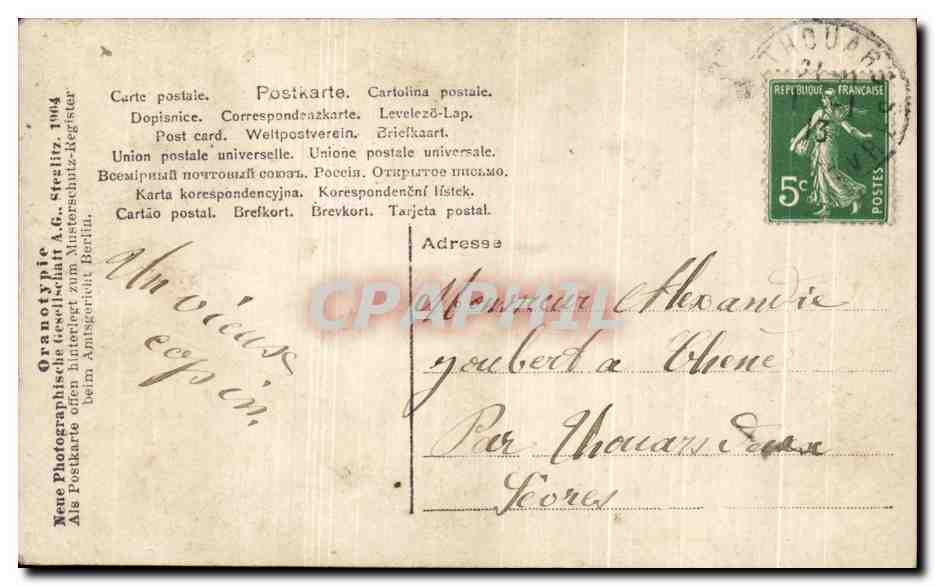 Carte postale. Postkarte. Cartolina postale.
Dopisnice. Correspondenzkarte. Levelező-Lap.
Post card. Weltpostverein. Briefkaart.
Union postale universelle. Unione postale universale.
Всемірный почтовый союзъ. Россія. Открытое письмо.
Karta korespondencyjna. Korespondenční lístek.
Cartão postal. Brefkort. Brevkort. Tarjeta postal.
Oranotypie
Neue Photographische Gesellschaft A.G., Steglitz. 1904
Als Postkarte offen hinterlegt zum Musterschutz-Register
beim Amtsgericht Berlin.
THOUARS
REPUBLIQUE FRANÇAISE
5c
POSTES
Un vieux
copin.
Adresse
Monsieur Alexandre
Joubert a Thené
Par Thouars Deux
Sèvres
CPAPHIL